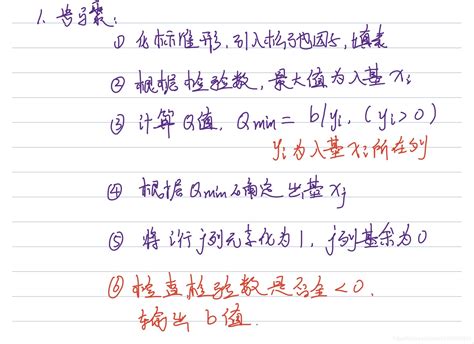 1. 步骤:
① 化标准形,引入松弛因子,填表
② 根据检验数,最大值为入基 xi
③ 计算Q值, Qmin = b/yi, (yi>0)
yi为入基xi所在列
④ 根据Qmin确定出基xj
⑤ 将i行j列元素化为1, j列其余为0
⑥ 检查检验数是否全<0.
输出b值.